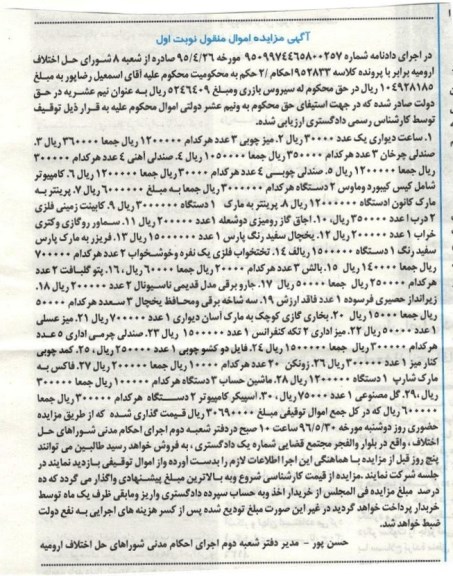 آگهی مزایده اموال منقول نوبت اول
در اجرای دادنامه شماره ۹۵۰۹۹۷۴۴۶۵۸۰۰۲۵۷ مورخه ۹۵/۴/۲۶ صادره از شعبه ۸ شورای حل اختلاف
ارومیه برابر با پرونده کلاسه ۹۵۲۸۳۳ احکام/۲ حکم به محکومیت محکوم علیه آقای اسمعیل رضاپور به مبلغ
۱۰۴۹۲۸۱۸۵ ریال در حق محکوم له سیروس بازری ومبلغ ۵۲۴۶۴۰۹ ریال به عنوان نیم عشریه در حق
دولت صادر شده که در جهت استیفای حق محکوم به ونیم عشر دولتی اموال محکوم علیه به قرار ذیل توقیف
توسط کارشناس رسمی دادگستری ارزیابی شده.
۱. ساعت دیواری یک عدد ۳۰۰۰۰ ریال ۲. میز چوبی ۳ عدد هرکدام ۱۲۰۰۰۰۰ ریال جمعا ۳۶۰۰۰۰۰ ریال ۳.
صندلی چرخان ۳ عدد هرکدام ۳۵۰۰۰۰ ریال جمعا ۱۰۵۰۰۰۰ ریال ۴. صندلی آهنی ۴ عدد هرکدام ۳۰۰۰۰۰
ریال جمعا ۱۲۰۰۰۰۰ ریال ۵. صندلی چوبی ۴ عدد هرکدام ۳۰۰۰۰ ریال جمعا ۱۲۰۰۰۰ ریال ۶. کامپیوتر
شامل کیس کیبورد وماوس ۲ دستگاه هرکدام ۳۰۰۰۰۰۰ ریال جمعا به مبلغ ۶۰۰۰۰۰۰ ریال ۷. پرینتر به
مارک کانون ۱دستگاه ۱۲۰۰۰۰۰ ریال ۸. پرینتر به مارک ۱ دستگاه ۳۰۰۰۰۰ ریال ۹. کابینت زمینی فلزی
۲ درب ۱ عدد ۳۵۰۰۰۰ ریال، ۱۰. اجاق گاز رومیزی دوشعله ۱ عدد ۲۰۰۰۰۰ ریال ۱۱. سماور روگازی وکتری
خراب ۱ عدد ۲۰۰۰۰۰ ریال ۱۲. یخچال سفید رنگ پارس ۱ عدد ۱۵۰۰۰۰۰ ریال ۱۳. فریزر به مارک پارس
سفید رنگ ۱ دستگاه ۱۵۰۰۰۰۰ ریالف ۱۴. تختخواب فلزی یک نفره وخوشخواب ۲ عدد هرکدام ۷۰۰۰۰۰
ریال جمعا ۱۴۰۰۰۰۰ ریال ۱۵. بالش ۳ عدد هرکدام ۲۰۰۰۰ ریال جمعا ۶۰۰۰۰ ریال، ۱۶. پتو گلبافت ۲ عدد
هرکدام ۲۵۰۰۰۰ ریال جمعا ۵۰۰۰۰۰ ریال ۱۷. جارو برقی مدل قدیمی ناسیونال ۲ عدد ۲۰۰۰۰۰ ریال ۱۸.
زیرانداز حصیری فرسوده ۱ عدد فاقد ارزش ۱۹. سه شاخه برقی ومحافظ یخچال ۳ عدد هرکدام ۵۰۰۰۰
ریال جمعا ۱۵۰۰۰۰ ریال ۲۰. بخاری گازی کوچک به مارک آسان دیواری ۱ عدد ۷۰۰۰۰۰ ریال ۲۱. میز عسلی
۱ عدد ۵۰۰۰۰ ریال ۲۲. میز اداری ۲ تکه کنفرانس ۱ عدد ۱۵۰۰۰۰۰ ریال ۲۳. صندلی چرمی اداری ۵ عدد
هرکدام ۳۰۰۰۰۰ ریال جمعا ۱۵۰۰۰۰۰ ریال ۲۴. فایل دو کشو چوبی ۱ عدد ۲۵۰۰۰۰ ریال، ۲۵. کمد چوبی
کنار میز ۱ عدد ۳۰۰۰۰۰ ریال ۲۶. زونکن ۲۰ عدد هرکدام ۱۰۰۰۰ ریال جمعا ۲۰۰۰۰۰ ریال ۲۷. فاکس به
مارک شارپ ۱ دستگاه ۱۲۰۰۰۰۰ ریال ۲۸. ماشین حساب ۳ دستگاه هرکدام ۱۰۰۰۰۰ ریال جمعا ۳۰۰۰۰۰
ریال، ۲۹. گل مصنوعی ۱ عدد ۷۵۰۰۰ ریال، ۳۰. اسپیکر کامپیوتر ۲ دستگاه هرکدام ۳۰۰۰۰۰ ریال جمعا
۶۰۰۰۰۰ ریال که در کل جمع اموال توقیفی مبلغ ۳۰۶۹۰۰۰۰ ریال قیمت گذاری شده که از طریق مزایده
حضوری روز دوشنبه مورخه ۹۶/۵/۳۰ ساعت ۱۰ صبح دردفتر شعبه دوم اجرای احکام مدنی شوراهای حل
اختلاف، واقع در بلوار والفجر مجتمع قضایی شماره یک دادگستری، به فروش خواهد رسید طالبین می توانند
پنج روز قبل از مزایده با هماهنگی این اجرا اطلاعات لازم را بدست آورده واز اموال توقیفی بازدید نمایند در
جلسه شرکت نمایند .مزایده از قیمت کارشناسی شروع وبه بالاترین مبلغ پیشنهادی واگذار می گردد که ده
درصد مبلغ مزایده فی المجلس از خریدار اخذ وبه حساب سپرده دادگستری واریز ومابقی ظرف یک ماه توسط
خریدار پرداخت خواهد گردید در غیر این صورت مبلغ تودیع شده پس از کسر هزینه های اجرایی به نفع دولت
ضبط خواهد شد.
حسن پور - مدیر دفتر شعبه دوم اجرای احکام مدنی شوراهای حل اختلاف ارومیه